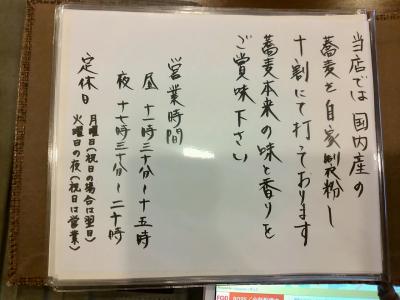 当店では国内産の
蕎麦を自家製粉し
十割にて打っております
蕎麦本来の味と香りを
ご賞味下さい
営業時間
昼 十一時三十分~十五時
夜 十七時三十分~二十時
定休日
月曜日(祝日の場合は翌日)
火曜日の夜(祝日は営業)